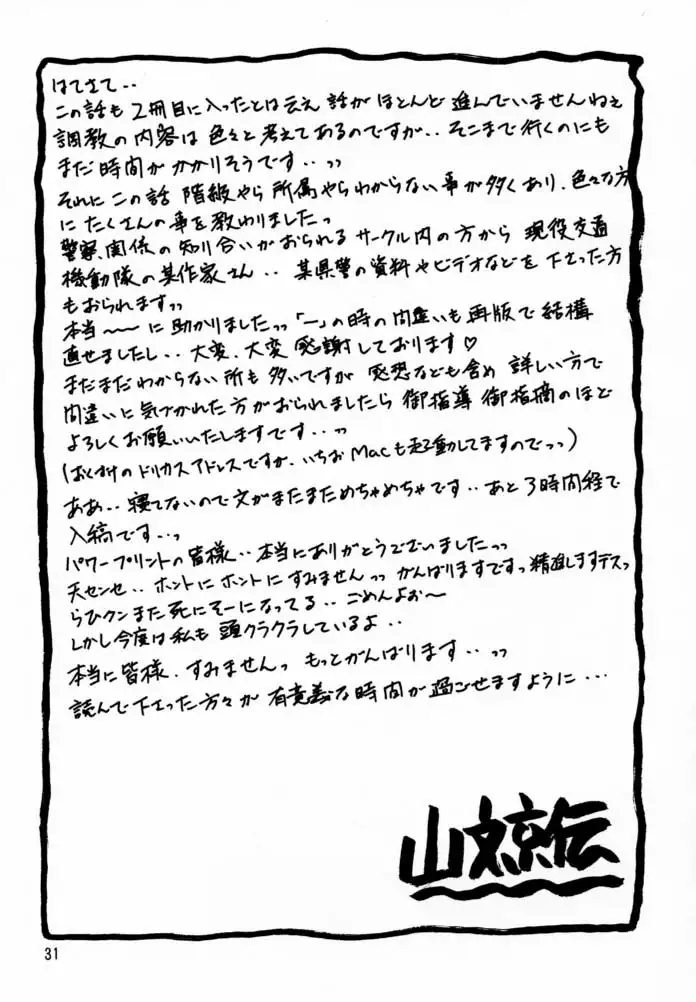 はてさて‥
この話も 2冊目に入ったとは云え 話が ほとんど 進んでいませんねぇ
調教の内容は 色々と 考えて あるのですが‥ そこまで 行くのにも
まだ 時間が かかりそうです‥っっ
それに この話 階級やら 所属やらわからない事が多くあり、色々な方
に たくさんの事を教わりましたっ
警察関係の知り合いがおられる サークル内の方から 現役交通
機動隊の某作家さん‥ 某県警の資料やビデオなどを下さった方
もおられますっっ
本当〜〜に助かりましたっっ「一」の時の間違いも 再版で 結構
直せましたし‥ 大変、大変 感謝しております♡
まだまだわからない所も 多いですが 感想なども含め 詳しい方で
間違いに気づかれた方がおられましたら 御指導 御指摘のほど
よろしくお願いいたしますです‥っ
(おくずけのドリカスアドレスですが、いちお Macも起動してますのでっっ)
ああ‥ 寝てないので文がまたまためちゃめちゃです‥ あと 3時間経で
入稿です‥っ
パワープリントの皆様‥ 本当にありがとうございましたっっ
天センセ‥ ホントに ホントに すみませんっっ がんばりますですっ 精進しますデスっ
らひクンまた 死にそーになってる‥ ごめんよぉ〜
しかし今度は私も 頭クラクラしているよ‥
本当に皆様、すみませんっ もっとがんばります‥っっ
読んで下さった方々が 有意義な時間が 過ごせますように…
山文京伝
31